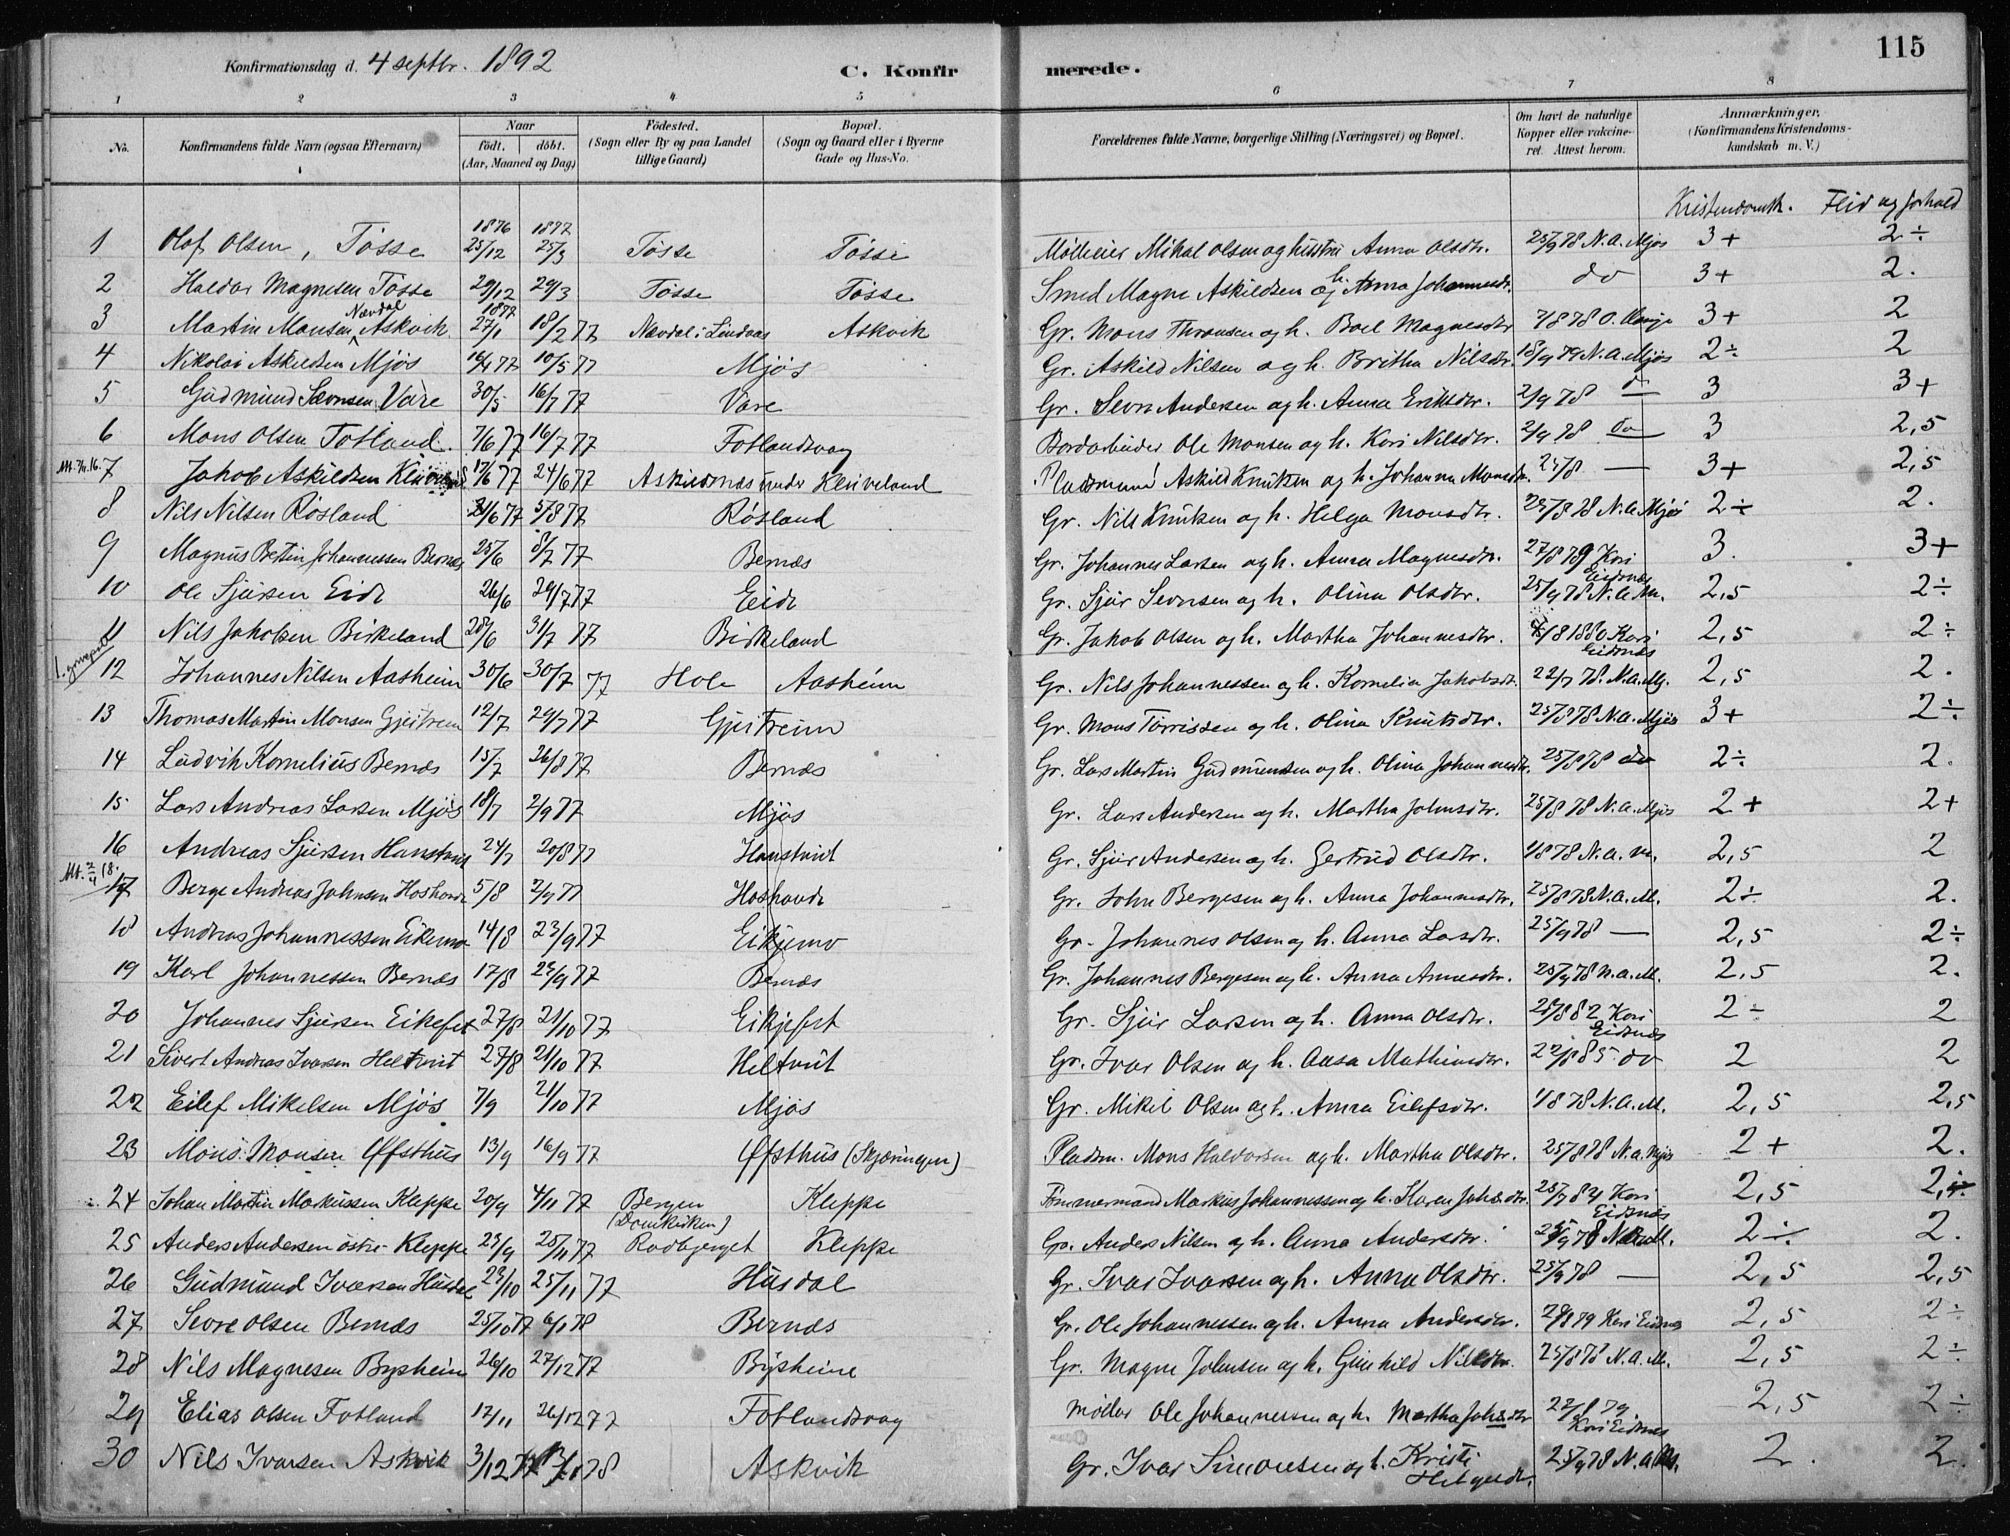 115
Konfirmationsdag d. 4 septbr. 1892
C. Konfirmerede.
1 2 3 4 5 6 7 8
No. Konfirmandens fulde Navn (ogsaa Efternavn) Naar født. døbt. (Aar, Maaned og Dag) Fødested. (Sogn eller By og paa Landet tillige Gaard) Bopæl. (Sogn og Gaard eller i Byerne Gade og Hus-No. Forældrenes fulde Navne, borgerlige Stilling (Næringsvei) og Bopæl. Om havt de naturlige Kopper eller vakcineret. Attest herom. Anmærkninger. (Konfirmandens Kristendomskundskab m. V.)
Kristendomsk. Flid og Forhold
1 Olaf Olsen, Tøsse 1876 25/12 1877 25/3 Tøsse Tøsse Mikal Olsen og hustru Anna Olsdtr. 25/9 78 N. A. Mjøs 3+ 2÷
2 Haldor Magnesen Tøsse 29/12 29/3 Tøsse Tøsse Smed Magne Askildsen og h. Anna Johannesdr. do 3+ 2.
3 Martin Monsen Nævdal Askvik 1877 27/1 18/2 77 Nævdal i Lindaas Askvik Gr. Mons Thronsen og h. Boel Magnesdtr 3+ 2
4 Nikolai Askildsen Mjøs 16/4 77 10/5 77 Mjøs Gr. Askild Nilsen og h. Britha Nilsdtr. 18/9 79 N. A. Mjøs 2÷ 2
5 Gudmund Sævrsen Vare 30/5 16/7 77 Vare Gr. Sevr Andersen og h. Anna Eriksdtr. 2/9 78 do 3 3+
6 Mons Olsen Fotland 7/6 77 16/7 77 Fotlandsvag Bordarbeider Ole Monsen og h. Kari Nilsdtr. 2/9 78 do 3 2,5
7 Jakob Askildsen 17/6 77 24/6 77 Askildnæs under Kleiveland Pladsmand Askild Knutsen og h. Johanna Monsdtr. 3+ 2,5
8 Nils Nilsen Røsland 21/6 77 5/8 77 Røsland Gr. Nils Knutsen og h. Helga Monsdtr. 25/8 78 N. A. Mjøs 2÷ 2.
9 Magnus Bertin Johannessen Bernæs 25/6 8/7 77 Bernæs Gr. Johannes Larsen og h. Anna Magnesdtr. 27/8 79 Kari Eidsnæs 3. 3+
10 Ole Sjursen Eide 26/6 29/7 77 Eide Gr. Sjur Sevrsen og h. Olina Olsdtr. 25/9 78 N. A. M. 2,5 2÷
11 Nils Jakobsen Birkeland 28/6 31/7 77 Birkeland Gr. Jakob Olsen og h. Martha Johannesdtr. 1880 Kari Eidsnæs 2,5 2÷
12 Johannes Nilsen Aasheim 30/6 30/7 77 Hole Aasheim Gr. Nils Johannessen og h. Kornelia Jakobsdtr. 22/7 78. N. A. Mj. 2,5 2.
13 Thomas Martin Monsen Gjeitreim 12/7 29/7 77 Gjeitreim Gr. Mons Torrissen og h. Olina Knutsdtr. 25/8 78 N. A. Mjøs 3+ 2÷
14 Ludvik Kornelius Bernæs 15/7 26/8 77 Bernæs Gr. Lars Martin Gudmundsen og h. Olina Johannesdtr. 25/8 78 do 2÷ 2.
15 Lars Andreas Larsen Mjøs 18/7 2/9 77 Mjøs Gr. Lars Andersen og h. Martha Johnsdtr. 25/8 78 N. A. Mjøs 2+ 2+
16 Andreas Sjursen Hanstvet 24/7 20/8 77 Hanstveit Gr. Sjur Andersen og h. Gertrud Olsdtr. N. A. M. 2,5 2
17 Berge Andreas Johnsen Hoshovde 5/8 2/9 77 Hoshovde Gr. John Bergesen og h. Anna Johannesdtr. 25/8 78 N. A. M. 2÷ 2.
18 Andreas Johannessen Eikemo 14/8 23/9 77 Eikjemo Gr. Johannes Olsen og h. Anna Larsdtr. 25/9 78 — 2,5 2÷
19 Karl Johannessen Bernæs 17/8 29/9 77 Bernæs Gr. Johannes Bergesen og h. Anna Arnesdtr. 25/9 78 N. A. M. 2,5 2.
20 Johannes Sjursen Eikefet 27/8 21/10 77 Eikjefet Gr. Sjur Larsen og h. Anna Olsdtr. 82 Kari Eidsnæs 2÷ 2
21 Sivert Andreas Ivarsen Heltveit 27/8 21/10 77 Heltveit Gr. Ivar Olsen og h. Aasa Mathiasdtr. 22/8 85 do 2 2
22 Eilef Mikelsen Mjøs 7/9 21/10 77 Mjøs Gr. Mikel Olsen og h. Anna Eilefsdtr. N. A. M. 2,5 2,5
23 Mons Monsen Øfsthus 13/9 16/9 77 Øfsthus (Skjæringen) Pladsm. Mons Haldorsen og h. Martha Olsdtr. 25/8 78 N. A. Mjøs 2+ 2.
24 Johan Martin Markussen Kleppe 20/9 4/11 77 Bergen (Domkirken) Kleppe Markus Johannessen og h. Karen Johsdtr. Kari Eidsnæs 2,5
25 Anders Andersen østre Kleppe 23/9 25/11 77 Rødbjerget Kleppe Gr. Anders Nilsen og h. Anna Andersdtr. 2÷ 2.
26 Gudmund Ivarsen Husdal 23/10 25/11 77 Husdal Gr. Ivar Ivarsen og h. Anna Olsdtr. 25/9 78 — 2,5 2,5
27 Sevre Olsen Bernæs 25/10 77 6/1 78 Bernæs Gr. Ole Johannessen og h. Anna Andersdtr. 28/8 79 Kari Eidsnæs 2,5 2÷
28 Nils Magnesen Bysheim 26/10 27/12 77 Bysheim Gr. Magne Johnsen og h. Gunhild Nilsdtr. 25/8 78 N. A. M. 2,5 2÷
29 Elias Olsen Fotland 12/11 26/12 77 Fotlandsvag Møller Ole Johannessen og h. Martha Johsdtr 27/8 79 Kari Eidsnæs 2,5 2÷
30 Nils Ivarsen Askvik 3/12 77 13/1 78 Askvik Gr. Ivar Simonsen og h. Kristi Helgesdtr. 25/9 78 N. A. M. 2. 2.